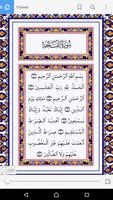 Viewer
سُورَةُ الْفَاتِحَةِ
بِسْمِ اللَّهِ الرَّحْمَٰنِ الرَّحِيمِ
الْحَمْدُ لِلَّهِ رَبِّ الْعَالَمِينَ
الرَّحْمَٰنِ الرَّحِيمِ مَالِكِ يَوْمِ الدِّينِ
إِيَّاكَ نَعْبُدُ وَإِيَّاكَ نَسْتَعِينُ
اهْدِنَا الصِّرَاطَ الْمُسْتَقِيمَ
صِرَاطَ الَّذِينَ أَنْعَمْتَ عَلَيْهِمْ غَيْرِ الْمَغْضُوبِ
عَلَيْهِمْ وَلَا الضَّالِّينَ